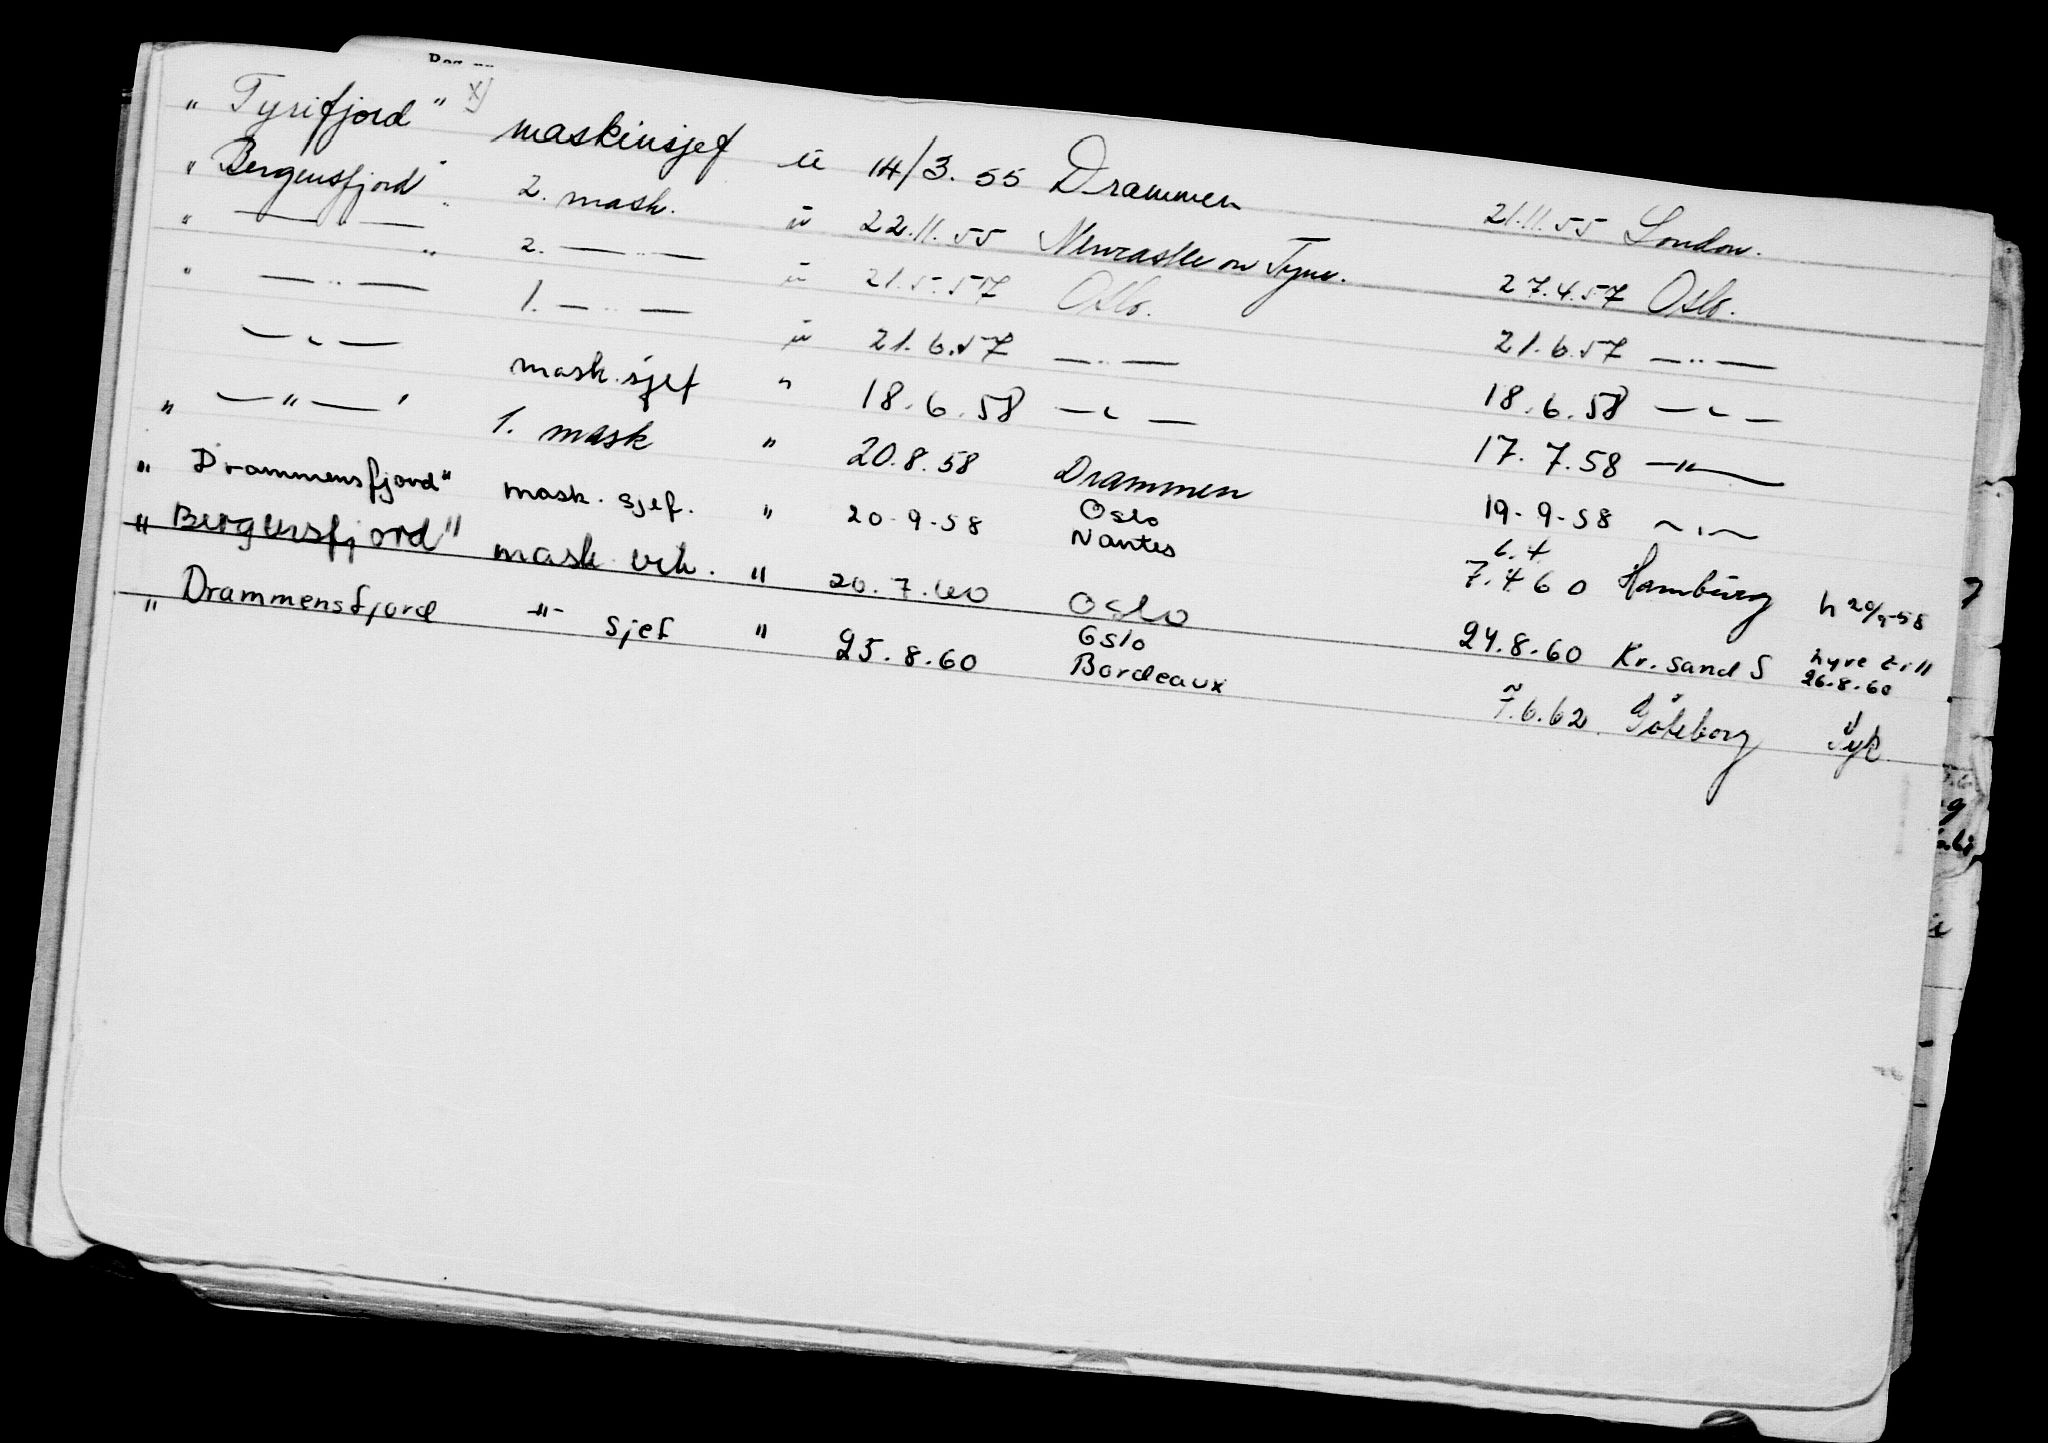 " Tyrifjord" x) maskinsjef u 14/3. 55 Drammen 21.11.55 London.
" Bergensfjord" 2. mask. u 22.11.55 Newcastle on Tyne. 27.4.57 Oslo.
" — " — " 2. — " — u 21.5.57 Oslo. 21.6.57 — " —
" — " — 1. — " — u 21.6.57 — " — 18.6.58 — " —
— " — mask.sjef " 18.6.58 — " — 17.7.58 — " —
" — " — " 1. mask " 20.8.58 Drammen 19.9.58 — " —
" Drammensfjord" mask. sjef. " 20.9.58 Oslo Nantes 6.4 7.4 60 Hamburg h 20/9-58
" Bergensfjord" mask. vik. " 20.7.60 Oslo 24.8.60 Kr.sand S hyre till 26.8.60
" Drammensfjord -"- sjef " 25.8.60 Oslo Bordeaux 7.6.62. Göteborg Syk.